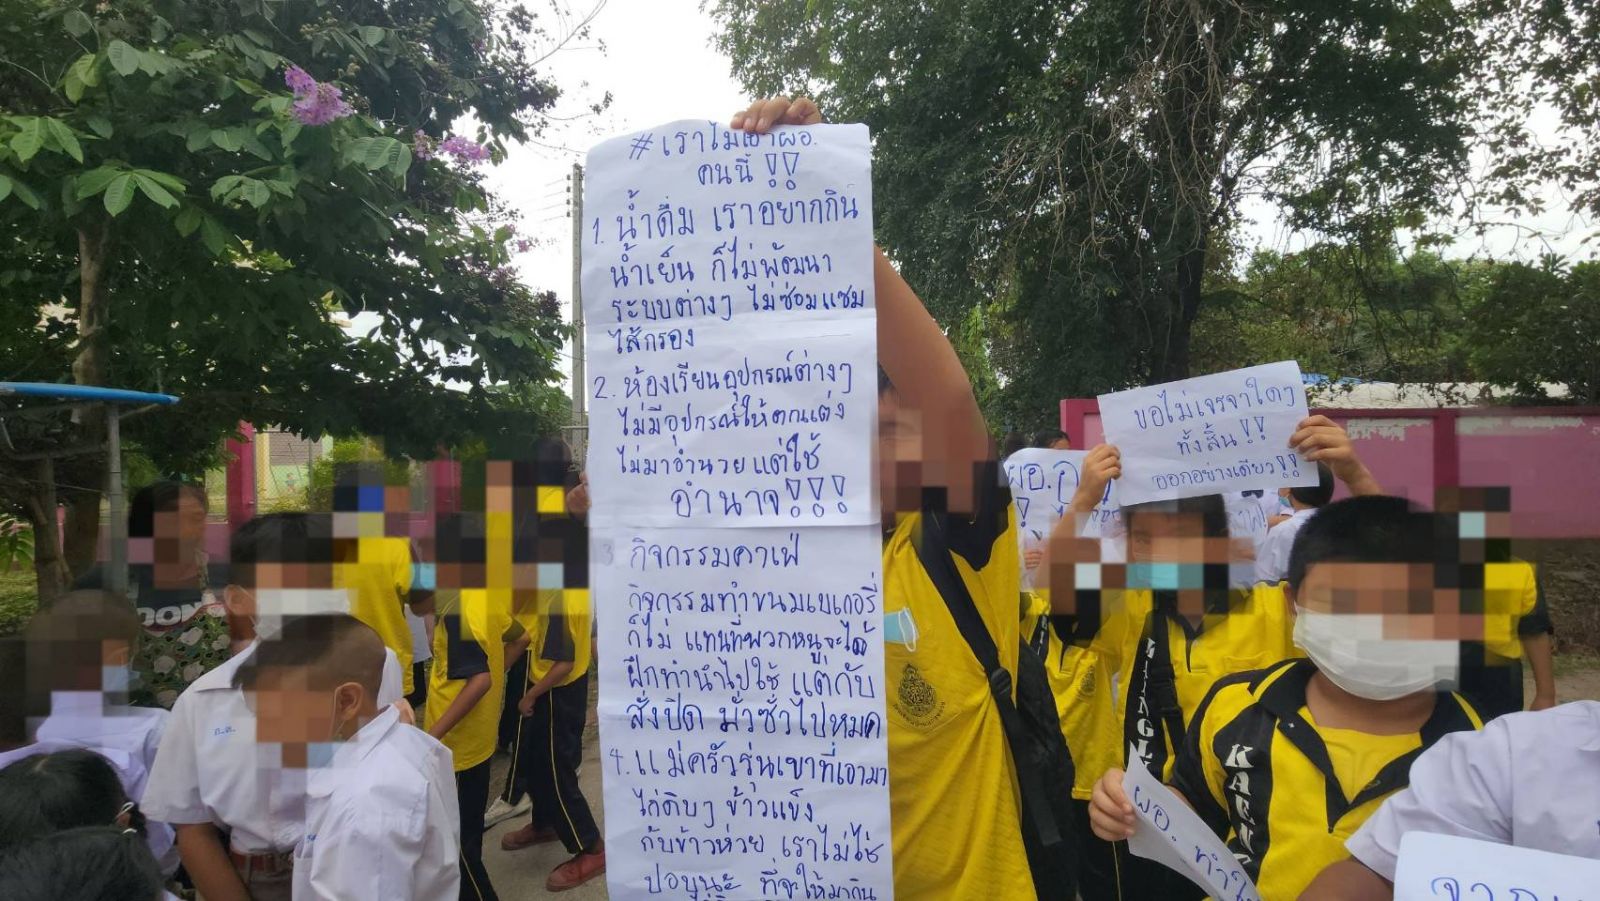 #เราไม่เอาผอ.
คนนี้ !!
1. น้ำดื่ม เราอยากกิน
น้ำเย็น ก็ไม่พัฒนา
ระบบต่างๆ ไม่ซ่อมแซม
ไส้กรอง
2. ห้องเรียนอุปกรณ์ต่างๆ
ไม่มีอุปกรณ์ให้ตกแต่ง
ไม่มาอำนวย แต่ใช้
อำนาจ!!!
3. กิจกรรมคาเฟ่
กิจกรรมทำขนมเบเกอรี่
ก็ไม่ แทนที่พวกหนูจะได้
ฝึกทำนำไปใช้ แต่กับ
สั่งปิด มั่วซั่วไปหมด
4. แม่ครัวรุ่นเขาที่เอามา
ไก่ดิบๆ ข้าวแข็ง
กับข้าวห่วย เราไม่ใช่
ปอบนะ ที่จะให้มากิน
ขอไม่เจรจาใดๆ
ทั้งสิ้น!!
ออกอย่างเดียว!!
ผอ.
ผอ. ทำ
KAENG